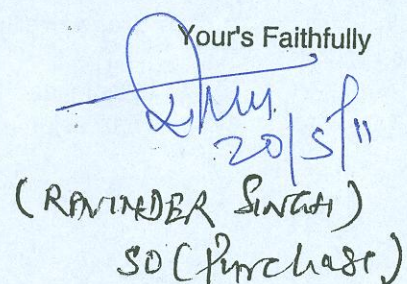 Your's Faithfully
20/5/11
(RAVINDER SINGH)
SO (Purchase)